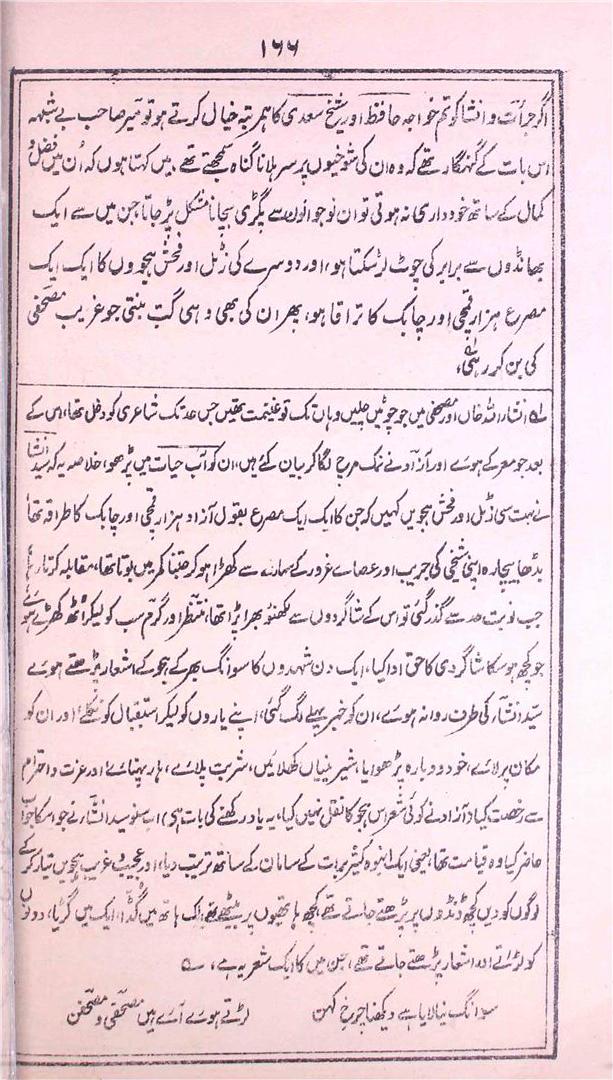 ۱۶۶
اگر جرأت و انشا کو تم خواجہ حافظ اور شیخ سعدی کا ہمرتبہ خیال کرتے ہو تو میر صاحب بے شبہہ
اس بات کے گنہگار تھے کہ وہ ان کی شوخیوں پر سر ہلانا گناہ سمجھتے تھے۔ میں کہتا ہوں کہ اُن میں فضل و
کمال کے ساتھ خود داری نہ ہوتی تو ان نوجوانوں سے پگڑی بچانا مشکل پڑ جاتا، جن میں سے ایک
بھانڈوں سے برابر کی چوٹ لڑ سکتا ہو، اور دوسرے کی زٹل اور فحش ہجووں کا ایک ایک
مصرع ہزار قمچی اور چابک کا تراقا ہو، پھر ان کی بھی وہی گت بنتی جو غریب مصحفی
کی بن کر رہی،
لہ انشاء اللہ خاں اور مصحفی میں جو چوٹیں چلیں وہاں تک تو غنیمت تھیں جس حد تک شاعری کو دخل تھا، اس کے
بعد جو معرکے ہوئے اور آزاد نے نمک مرچ لگا کر بیان کئے ہیں، ان کو آب حیات میں پڑھو، خلاصہ یہ کہ سید انشا
نے بہت سی زٹل اور فحش ہجویں کہیں کہ جن کا ایک ایک مصرع بقول آزاد ہزار قمچی اور چابک کا طراقہ تھا
بڈھا بیچارہ اپنی شیخی کی جریب اور عصاے غرور کے سہارے سے کھڑا ہو کر جتنا کمر میں بوتا تھا، مقابلہ کرتا رہا
جب نوبت حد سے گذر گئی تو اس کے شاگردوں سے لکھنؤ بھرا پڑا تھا، منتظر اور گرم سب کو لیکر اٹھ کھڑے ہوئے
جو کچھ ہو سکا شاگردی کا حق ادا کیا، ایک دن شہدوں کا سوانگ بھر کے ہجو کے اشعار پڑھتے ہوے
سید انشا کی طرف روانہ ہوے، ان کو خبر پہلے لگ گئی، اپنے یاروں کو لیکر استقبال کو نکلے، اور ان کو
مکان پر لائے، خود دوبارہ پڑھوایا، شیرینیاں کھلائیں، شربت پلائے، ہار پہنائے اور عزت و احترام
سے رخصت کیا، (آزاد نے کوئی شعر اس ہجو کا نقل نہیں کیا، یہ یاد رکھنے کی بات ہی) اب سنو سید انشا نے جو اسکا جواب
حاضر کیا وہ قیامت تھا، یعنی ایک انبوہ کثیر برات کے سامان کے ساتھ ترتیب دیا، اور عجیب و غریب ہجویں تیار کر کے
لوگوں کو دیں کچھ ڈنڈوں پر پڑھتے جاتے تھے، کچھ ہاتھیوں پر بیٹھے تھے، ایک ہاتھ میں گڈا، ایک میں گڑیا، دونوں
کو لڑاتے اور اشعار پڑھتے جاتے تھے، جن میں کا ایک شعر یہ ہے، ؎
سوانگ نیا لایا ہے دیکھنا چرخ کہن لڑتے ہوے آئے ہیں مصحفی و مصحفن